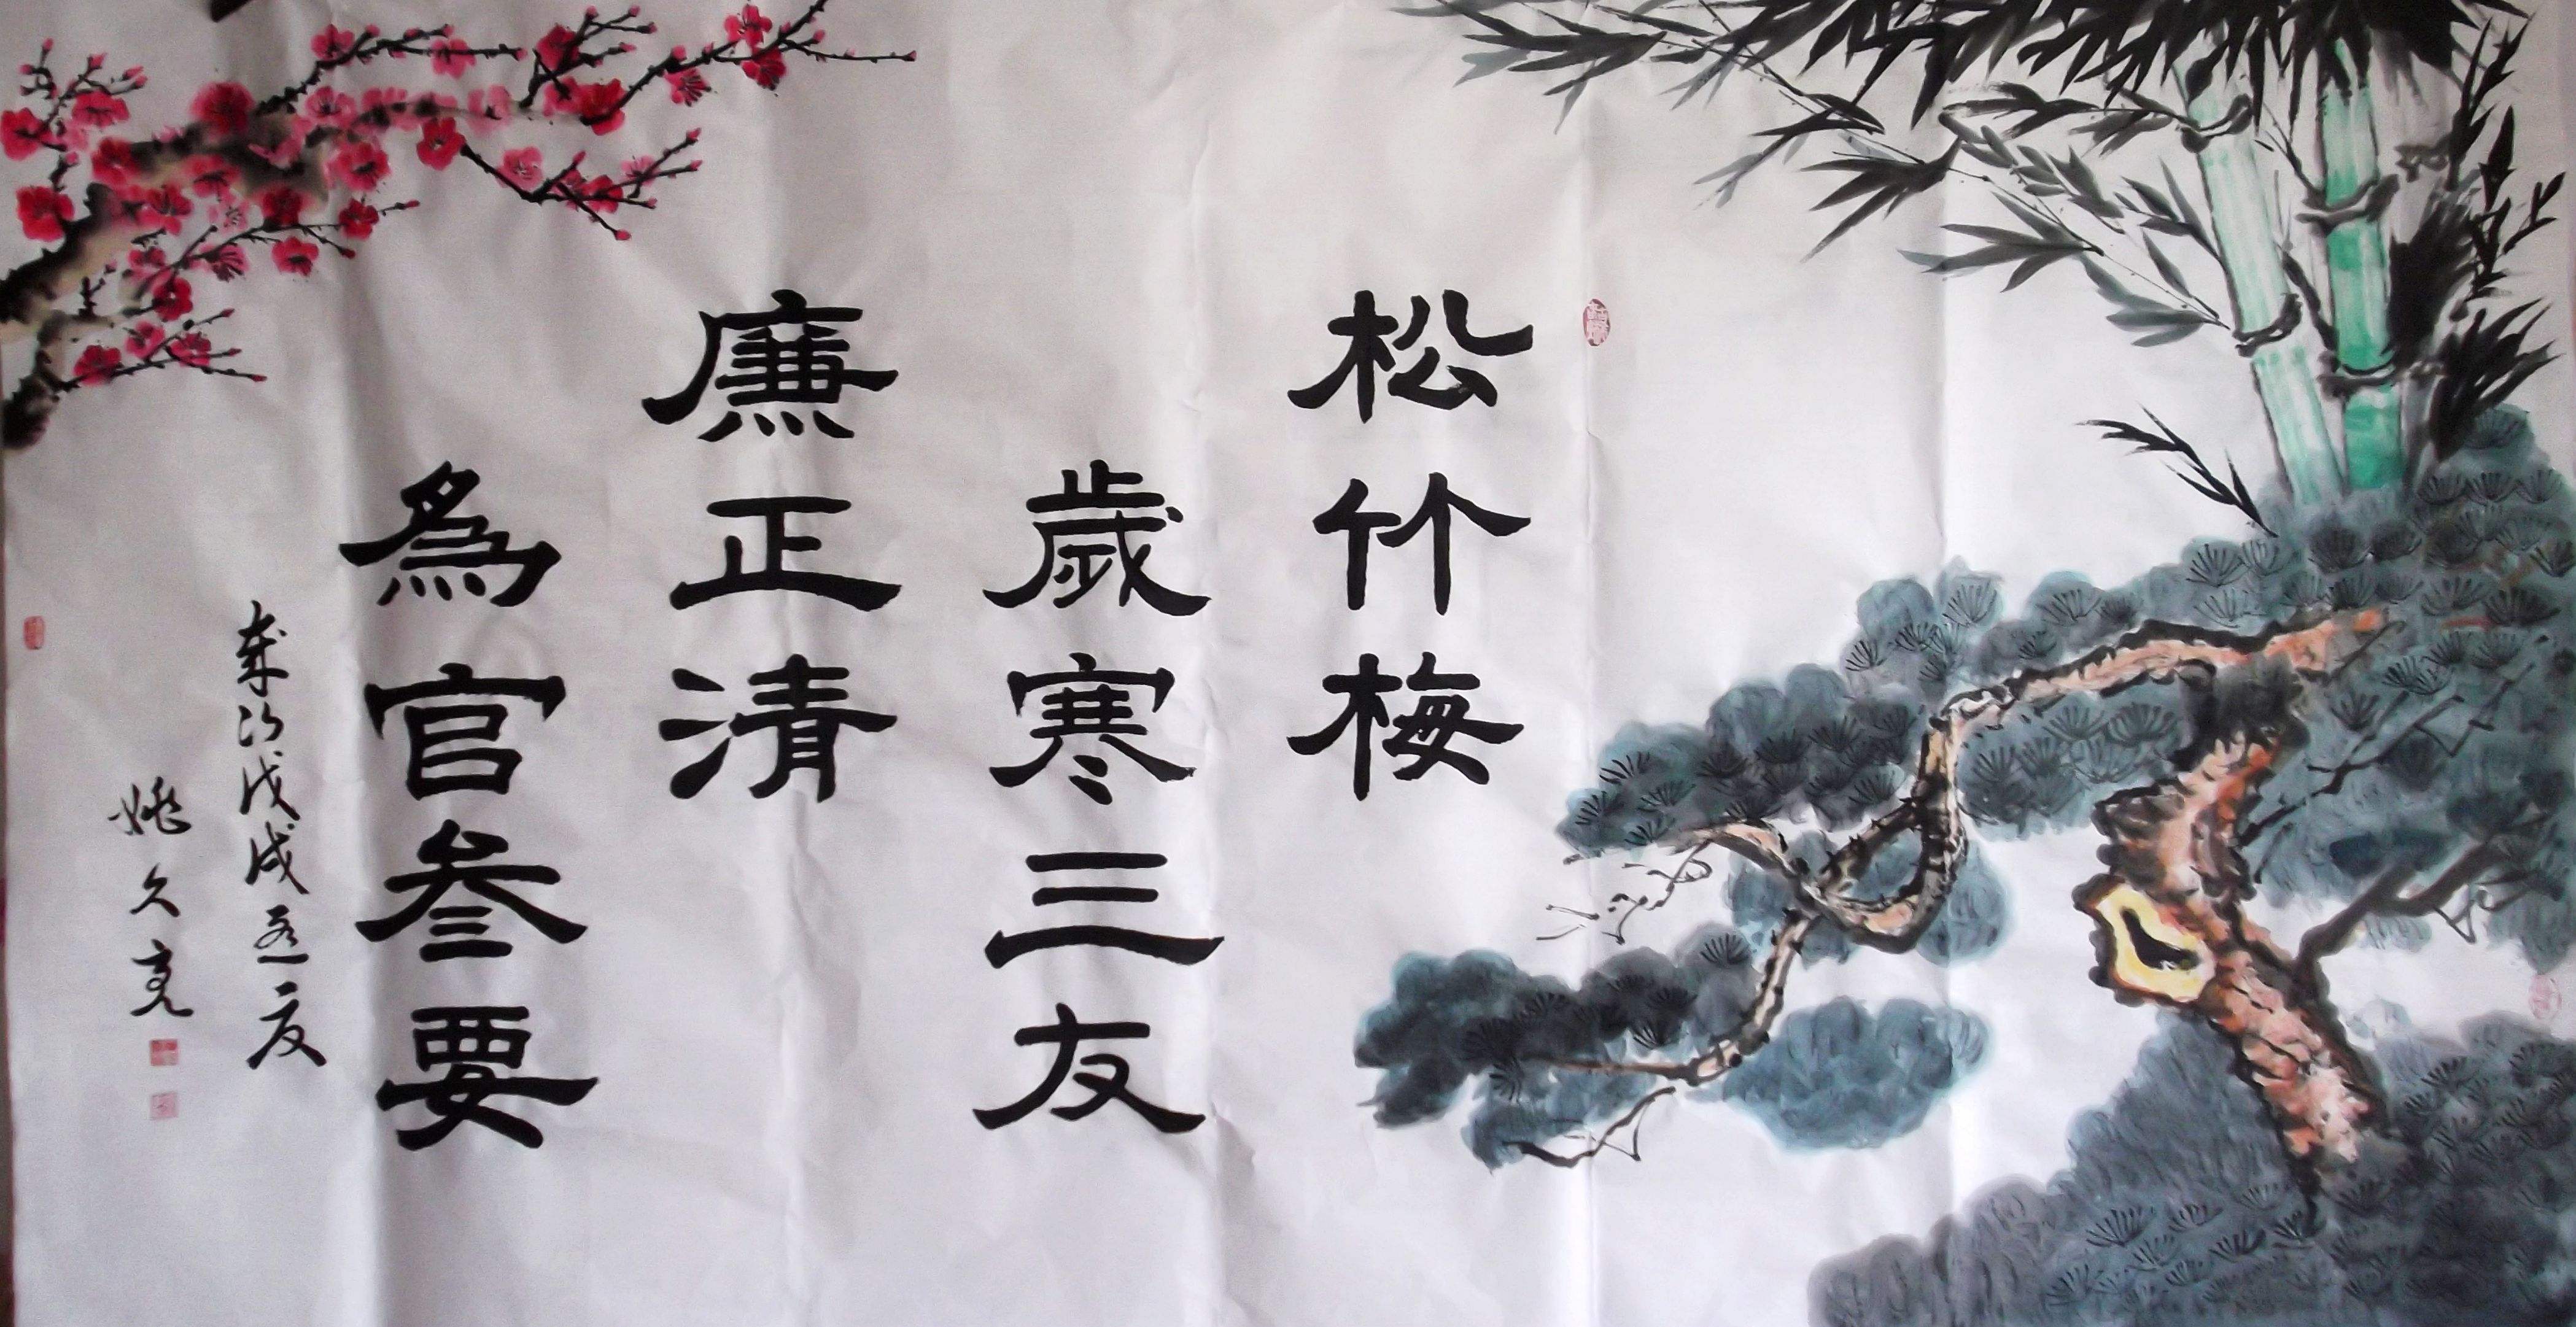 松竹梅
歲寒三友
廉正清
為官叁要
歲次戊戌孟夏
姚久亮